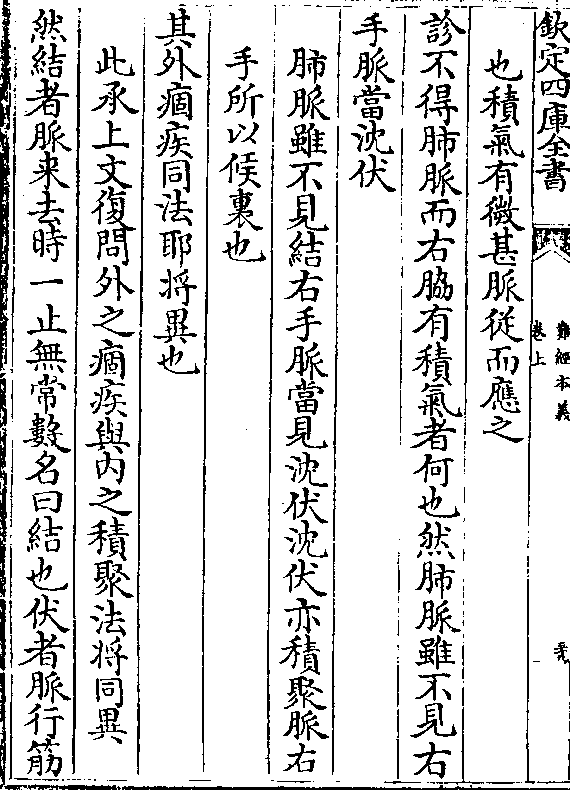 欽定四庫全書
難經本義
卷上
也積氣有微甚脈從而應之
診不得肺脈而右脇有積氣者何也然肺脈雖不見右
手脈當沈伏
肺脈雖不見結右手脈當見沈伏沈伏亦積聚脈右
手所以候裏也
其外痼疾同法耶將異也
此承上文復問外之痼疾與内之積聚法將同異
然結者脈来去時一止無常數名曰結也伏者脈行筋